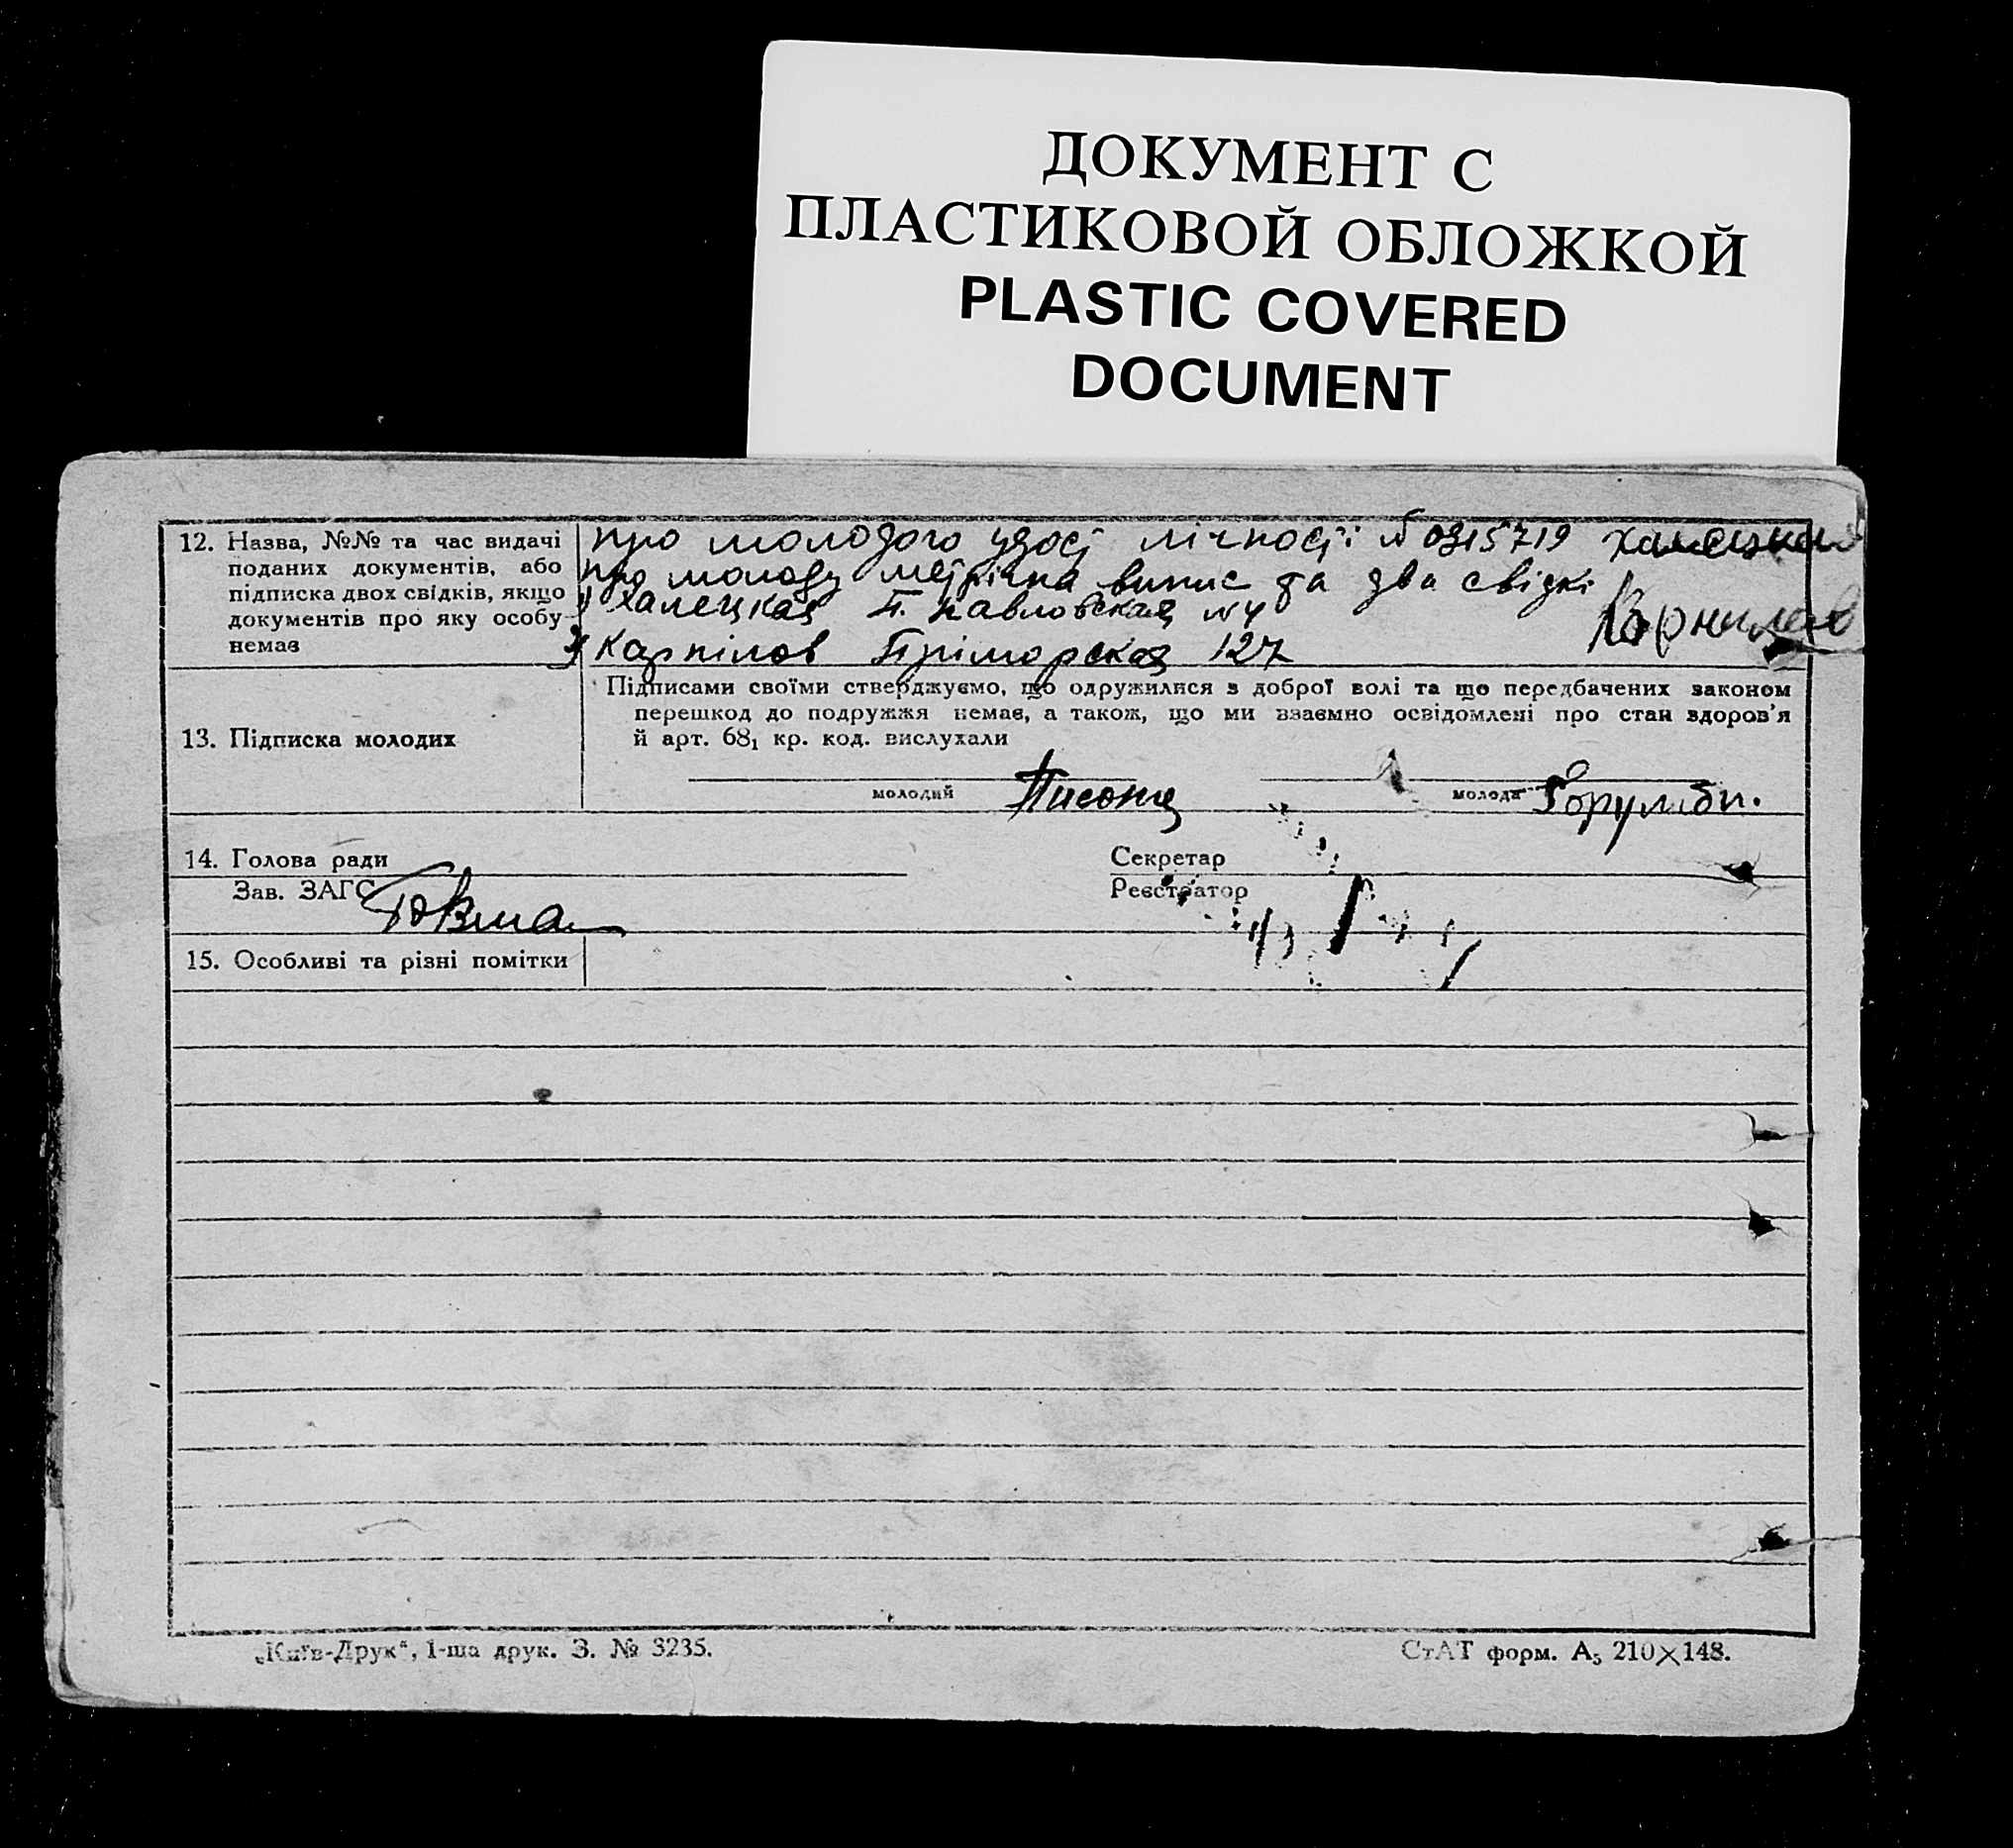 ДОКУМЕНТ С
ПЛАСТИКОВОЙ ОБЛОЖКОЙ
PLASTIC COVERED
DOCUMENT
12. Назва, №№ та час видачі
поданих документів, або
підписка двох свідків, якщо
документів про яку особу
немає
про молодого удост лічності №0315719
про молоду метрічна випис та два свідкі
1) Халецкая П. Павловская №4
2) Карпілов Пріморская 127
13. Підписка молодих
Підписами своїми стверджуємо, що одружилися з доброї волі та що передбачених законом
перешкод до подружжя немає, а також, що ми взаємно освідомлені про стан здоров'я
й арт. 68₁ кр. код. вислухали
молодий
молода
14. Голова ради
Секретар
Зав. ЗАГС
Реєстратор
15. Особливі та різні помітки
„Київ-Друк“, 1-ша друк. З. № 3235.
СтАТ форм. А₅ 210×148.